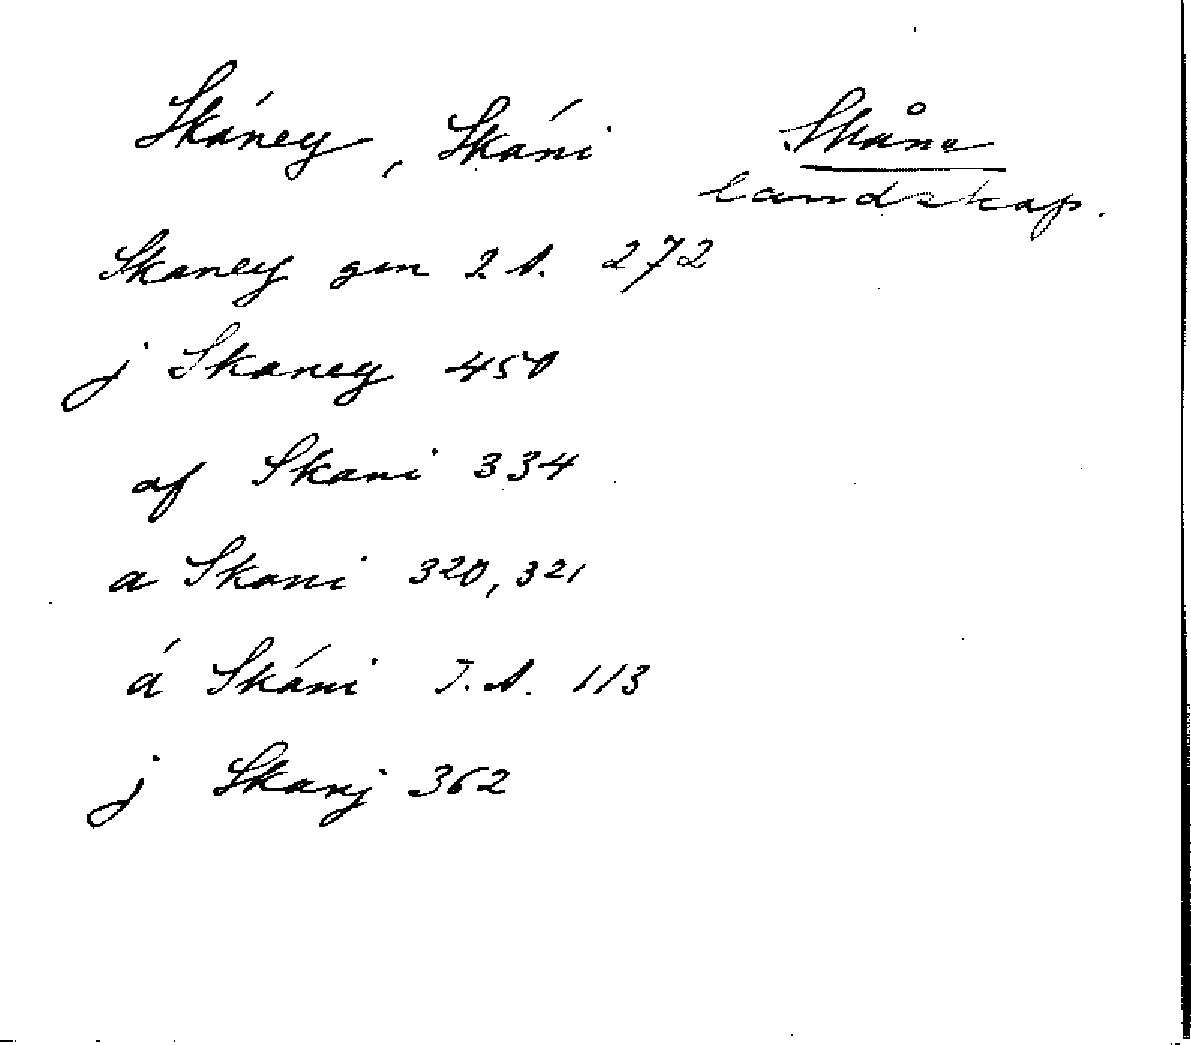 Skáney, Skáni Skåne
landskap.
Skaney gen 2 s. 272
j Skaney 450
af Skani 334
a Skani 320, 321
á Skáni J. s. 113
j Skanj 362